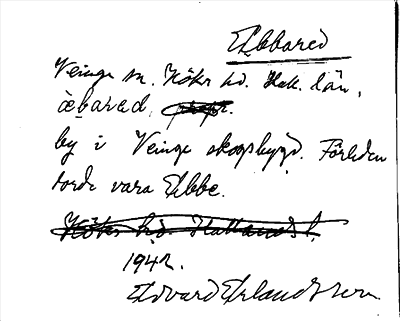 Ebbared
Veinge sn. Höks hd. Hall. län,
äbared,
by i Veinge skogsbygd. Förleden
torde vara Ebbe.
Höks hd. Hallands l.
1942.
Edvard Erlandsson